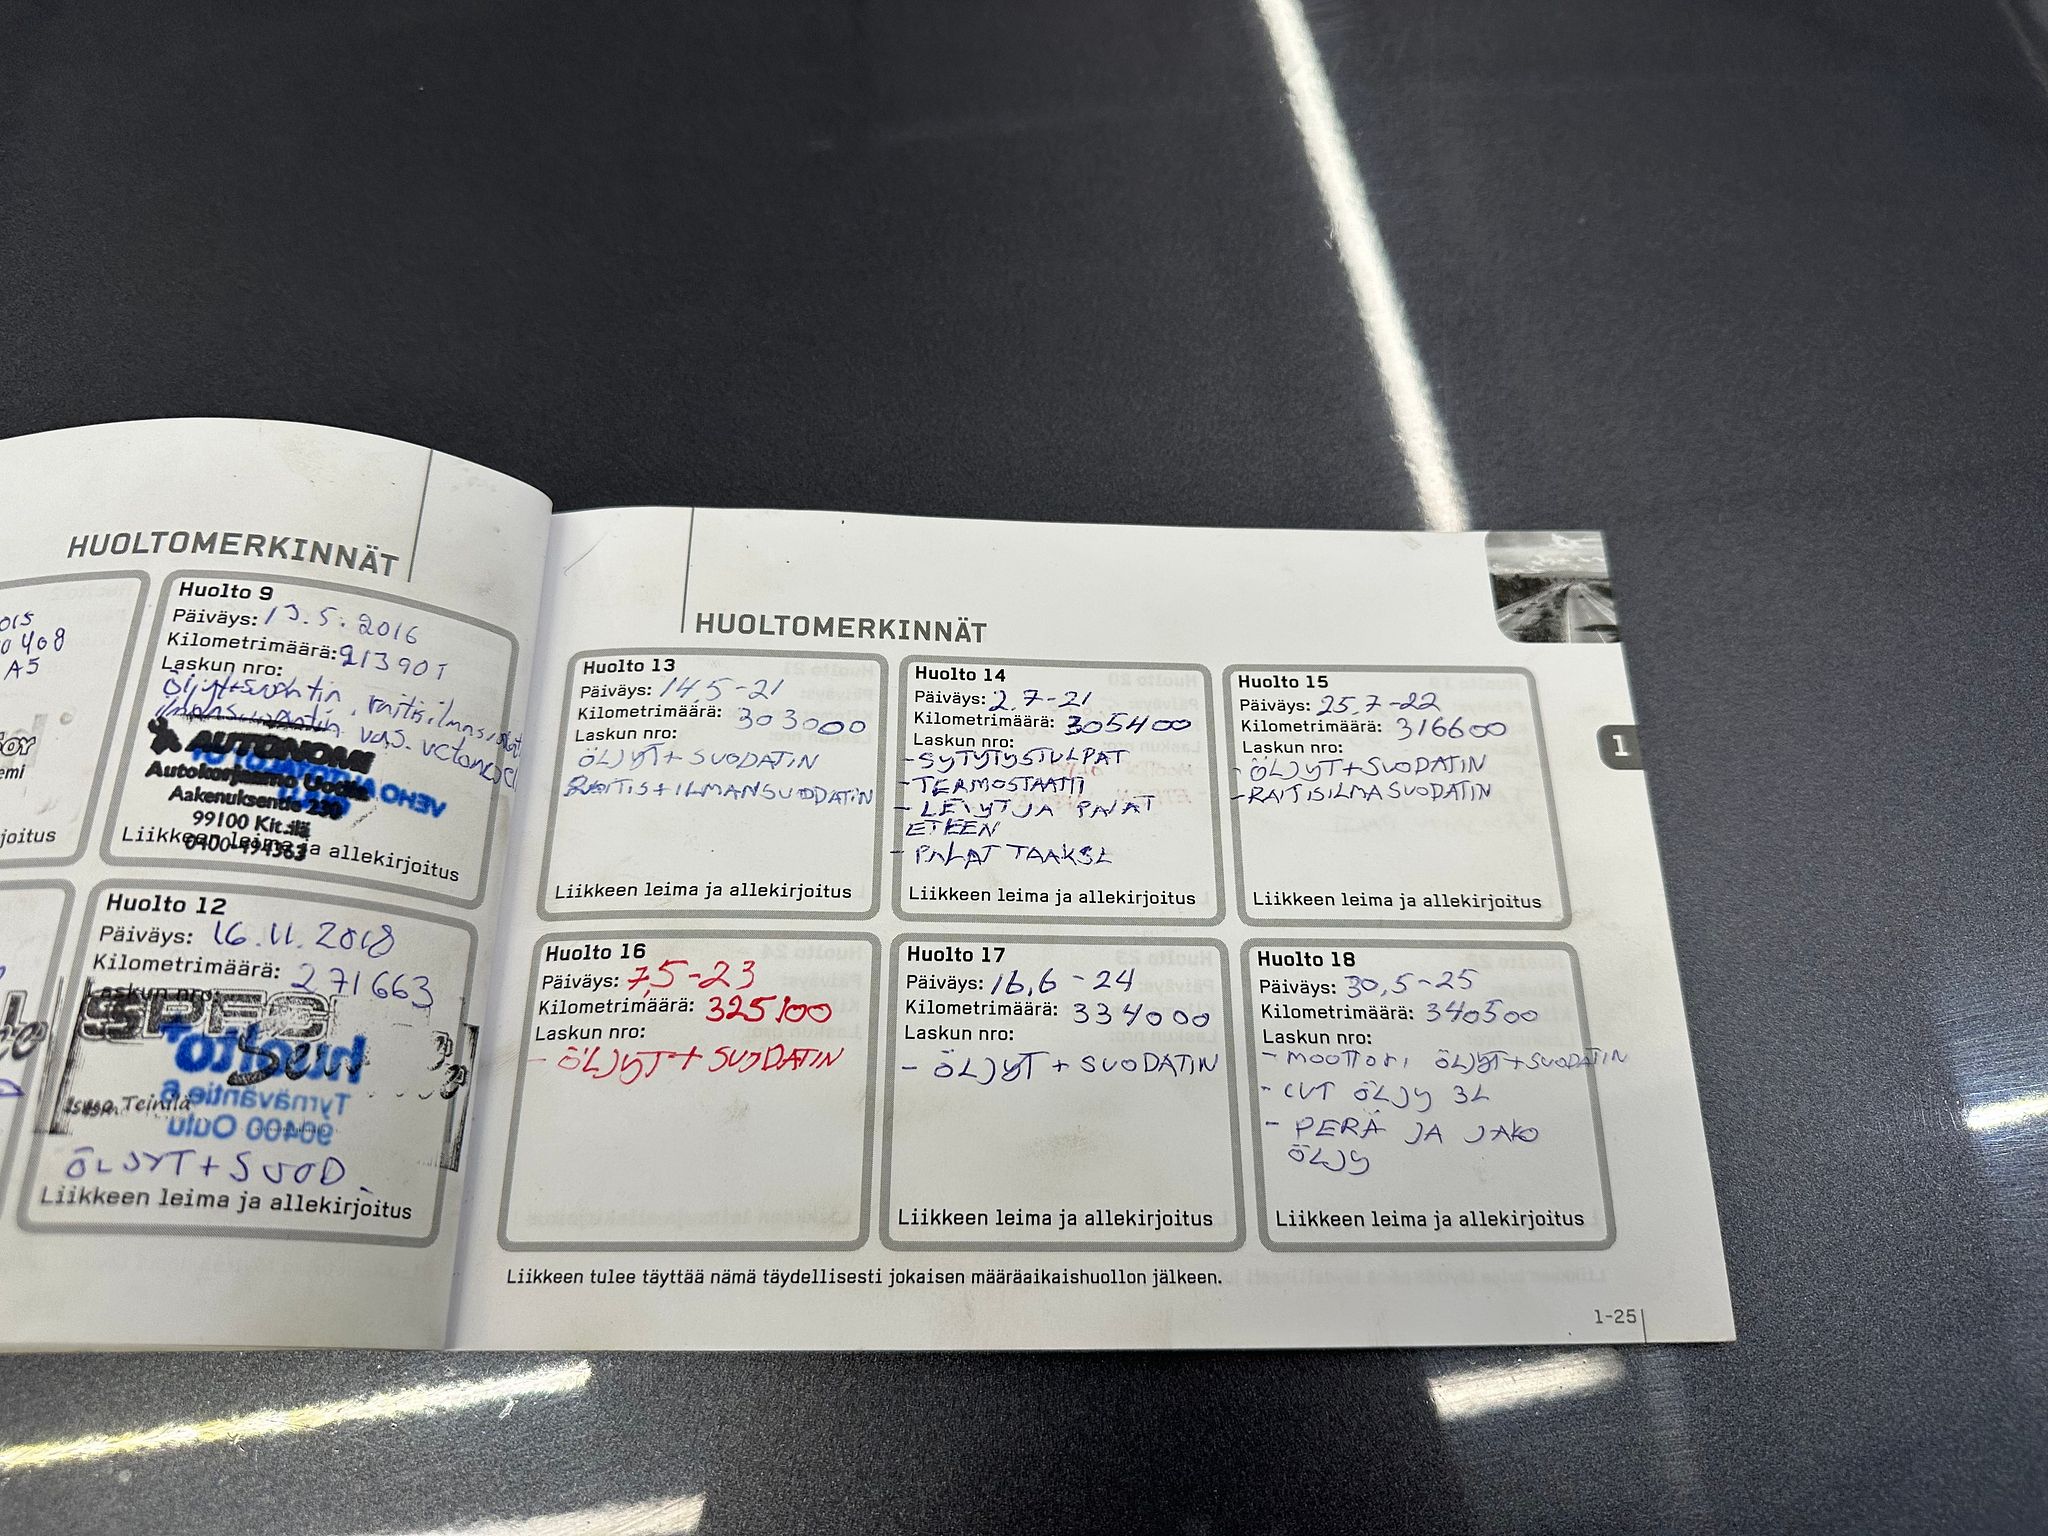 HUOLTOMERKINNÄT
015
0408
A5
joitus
Huolto 9
Päiväys: 13.5.2016
Kilometrimäärä: 213901
Laskun nro:
AUTONOMI
Autokorjaamo
Aakenuksentie 230
99100 Kittilä
0400-494363
Liikkeen leima ja allekirjoitus
Huolto 12
Päiväys: 16.11.2018
Kilometrimäärä: 271663
Laskun nro:
huolto
Tyrnäväntie 6
90400 Oulu
Teinilä
ÖLJYT + SUOD.
Liikkeen leima ja allekirjoitus
HUOLTOMERKINNÄT
Huolto 13
Päiväys: 14.5-21
Kilometrimäärä: 303000
Laskun nro:
ÖLJYT + SUODATIN
RAITIS + ILMANSUODATIN
Liikkeen leima ja allekirjoitus
Huolto 14
Päiväys: 2.7-21
Kilometrimäärä: 305400
Laskun nro:
- SYTYTYSTULPAT
- TERMOSTAATTI
- LEVYT JA PALAT
ETEEN
- PALAT TAAKSE
Liikkeen leima ja allekirjoitus
Huolto 15
Päiväys: 25.7-22
Kilometrimäärä: 316600
Laskun nro:
- ÖLJYT + SUODATIN
- RAITISILMASUODATIN
Liikkeen leima ja allekirjoitus
Huolto 16
Päiväys: 7.5-23
Kilometrimäärä: 325100
Laskun nro:
- ÖLJYT + SUODATIN
Huolto 17
Päiväys: 16.6-24
Kilometrimäärä: 334000
Laskun nro:
- ÖLJYT + SUODATIN
Liikkeen leima ja allekirjoitus
Huolto 18
Päiväys: 30.5-25
Kilometrimäärä: 340500
Laskun nro:
- MOOTTORI ÖLJYT + SUODATIN
- CVT ÖLJY 3L
- PERÄ JA JAKO
ÖLJY
Liikkeen leima ja allekirjoitus
Liikkeen tulee täyttää nämä täydellisesti jokaisen määräaikaishuollon jälkeen.
1
1-25